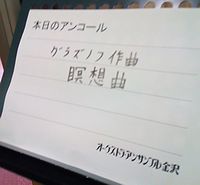 本日のアンコール
グラズノフ作曲
瞑想曲
オーケストラ・アンサンブル金沢